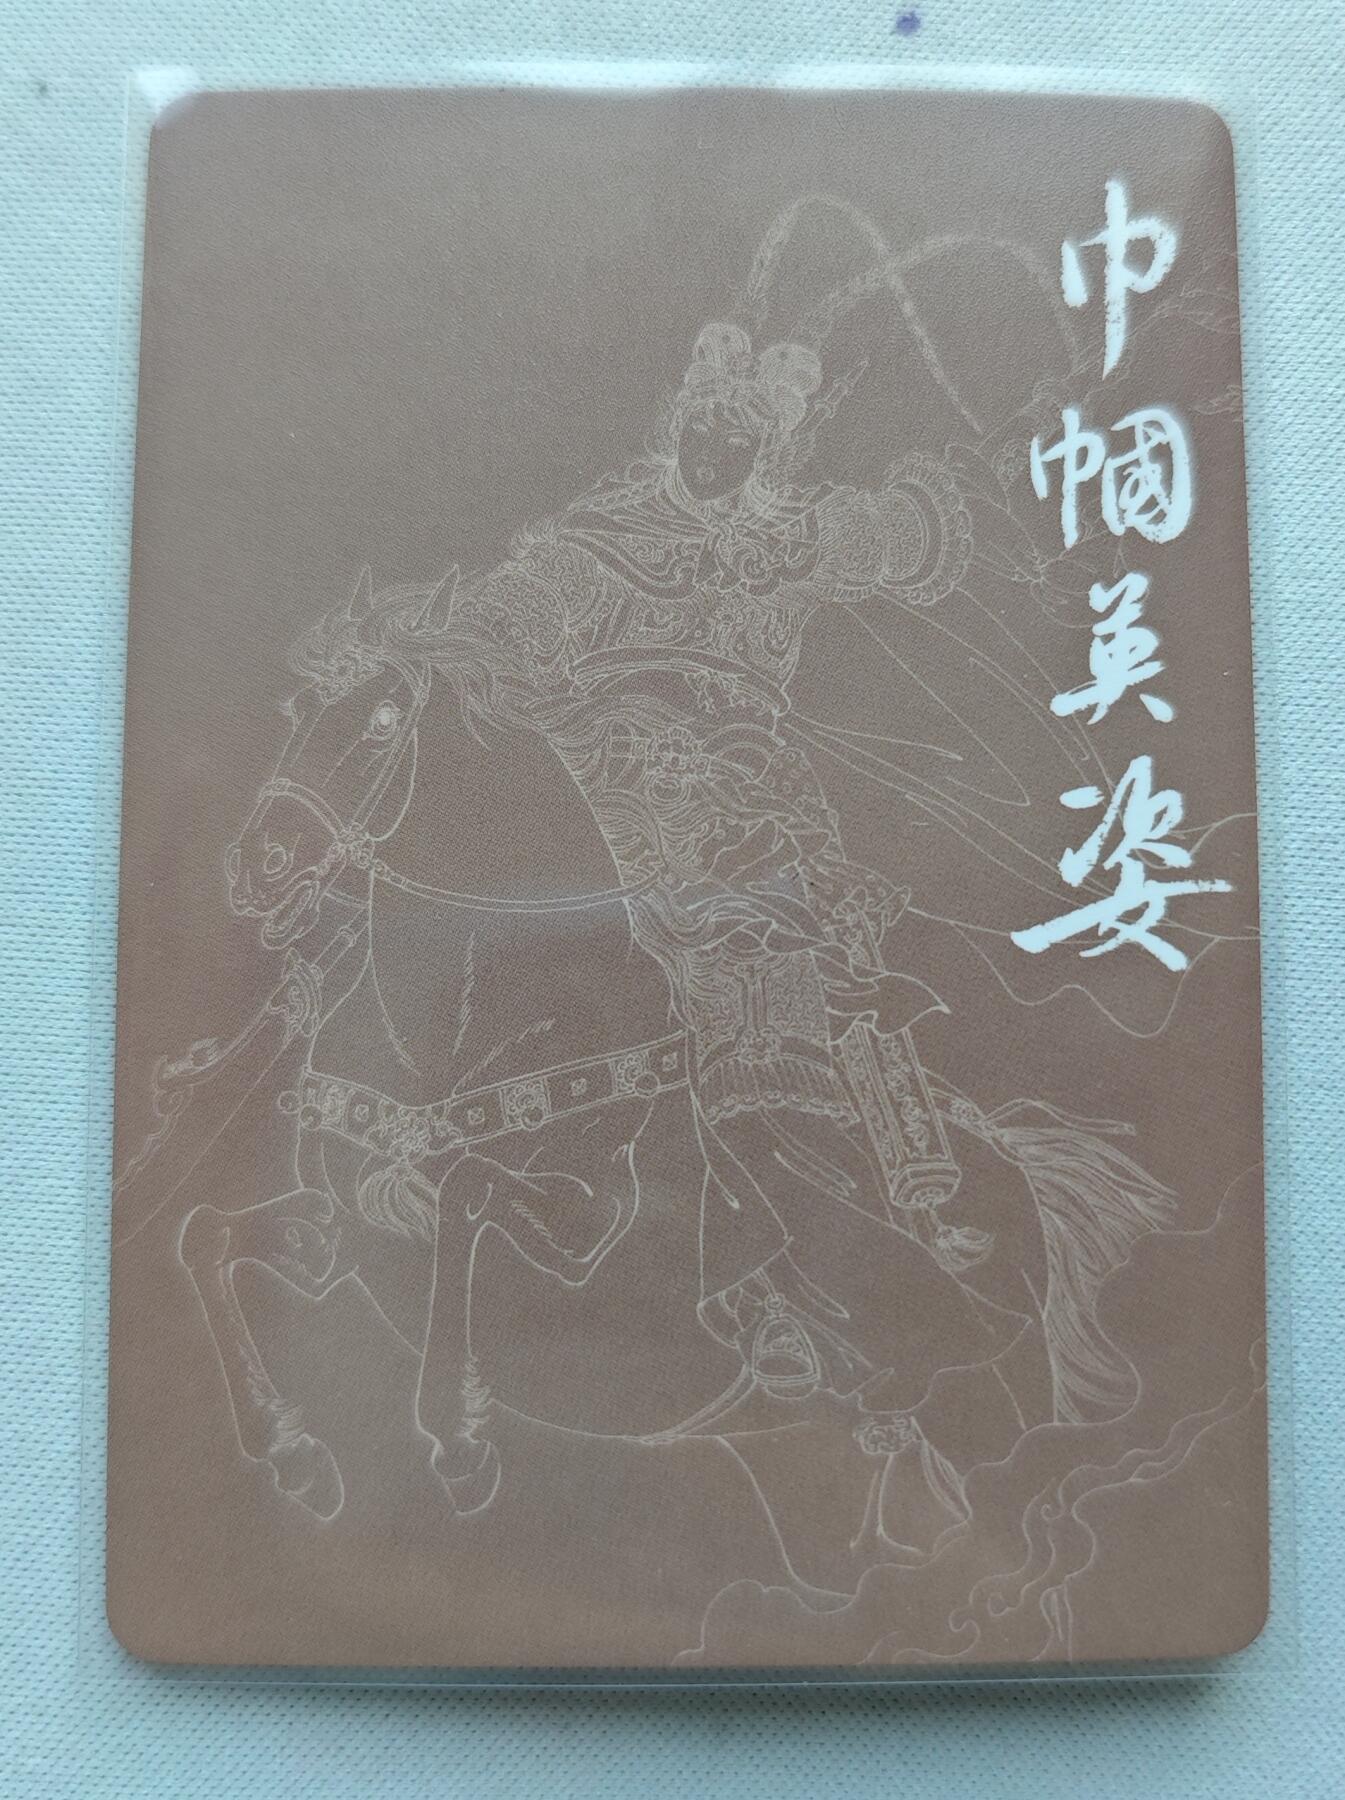 巾帼英姿